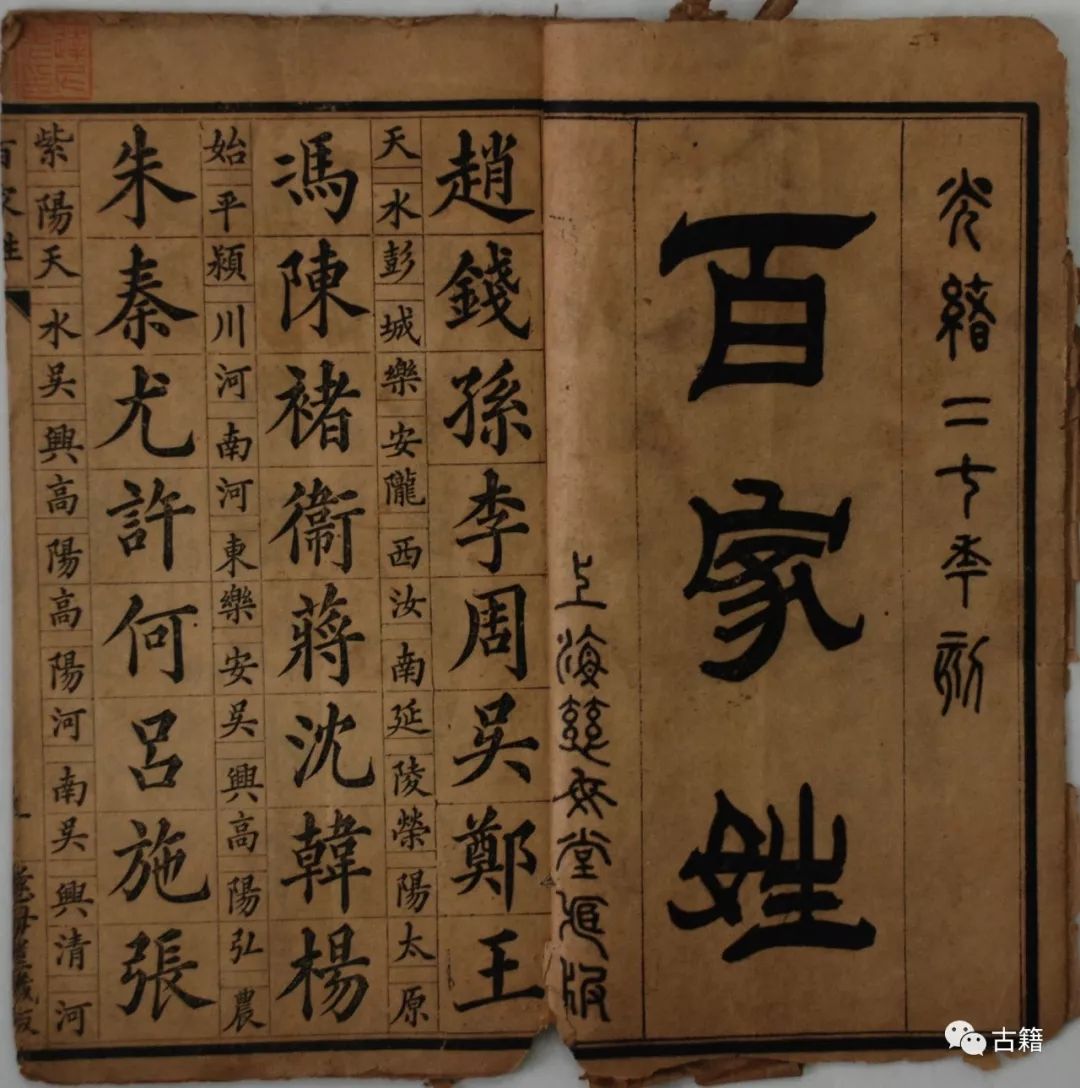 光緒二季刻
百家姓
上海慈母堂版
趙錢孫李周吳鄭王
天水彭城樂安隴西汝南延陵榮陽太原
馮陳褚衞蔣沈韓楊
始平潁川河南河東樂安吳興高陽弘農
朱秦尤許何呂施張
紫陽天水吳興高陽高陽河南吳興清河
百家姓
慈母堂藏板
古籍